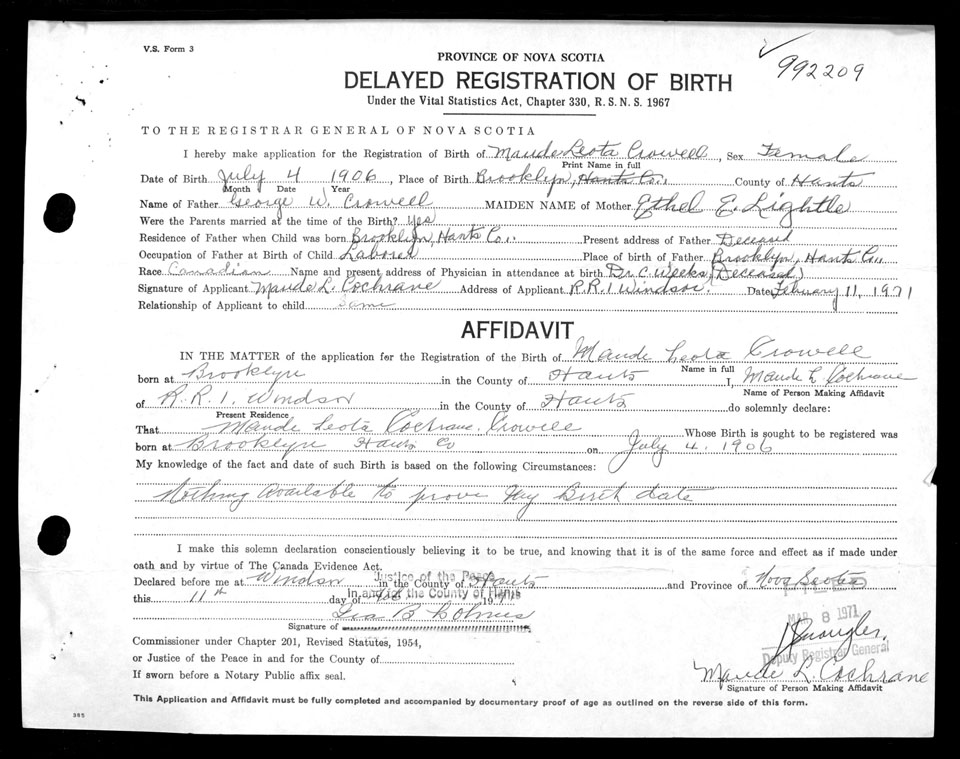 V.S. Form 3
992209
PROVINCE OF NOVA SCOTIA
DELAYED REGISTRATION OF BIRTH
Under the Vital Statistics Act, Chapter 330, R.S.N.S. 1967
TO THE REGISTRAR GENERAL OF NOVA SCOTIA
I hereby make application for the Registration of Birth of Maude Leota Crowell, Sex Female
Print Name in full
Date of Birth July 4 1906, Place of Birth Brooklyn, Hants Co., County of Hants
Month Date Year
Name of Father George W. Crowell MAIDEN NAME of Mother Ethel E. Lightle
Were the Parents married at the time of the Birth? Yes
Residence of Father when Child was born Brooklyn, Hants Co., Present address of Father Deceased
Occupation of Father at Birth of Child Laborer Place of birth of Father Brooklyn, Hants Co.,
Race Canadian Name and present address of Physician in attendance at birth Dr. C. Weeks (Deceased)
Signature of Applicant Maude L. Cochrane Address of Applicant R.R.1 Windsor Date February 11, 1971
Relationship of Applicant to child Same
AFFIDAVIT
IN THE MATTER of the application for the Registration of the Birth of Maude Leota Crowell
Name in full
born at Brooklyn in the County of Hants I, Maude L Cochrane
Name of Person Making Affidavit
of R.R.1, Windsor in the County of Hants do solemnly declare:
Present Residence
That Maude Leota Cochrane Crowell Whose Birth is sought to be registered was
born at Brooklyn Hants Co on July 4, 1906
My knowledge of the fact and date of such Birth is based on the following Circumstances:
Nothing Available to prove My Birth date
I make this solemn declaration conscientiously believing it to be true, and knowing that it is of the same force and effect as if made under
oath and by virtue of The Canada Evidence Act.
Declared before me at Windsor in the County of Hants and Province of Nova Scotia
Justice of the Peace
this 11th day of Feb 1971
In and for the County of Hants
FILED
MAR 8 1971
Geo B Holmes
Signature of
Deputy Registrar General
Commissioner under Chapter 201, Revised Statutes, 1954,
or Justice of the Peace in and for the County of
Maude L. Cochrane
If sworn before a Notary Public affix seal.
Signature of Person Making Affidavit
This Application and Affidavit must be fully completed and accompanied by documentary proof of age as outlined on the reverse side of this form.
385